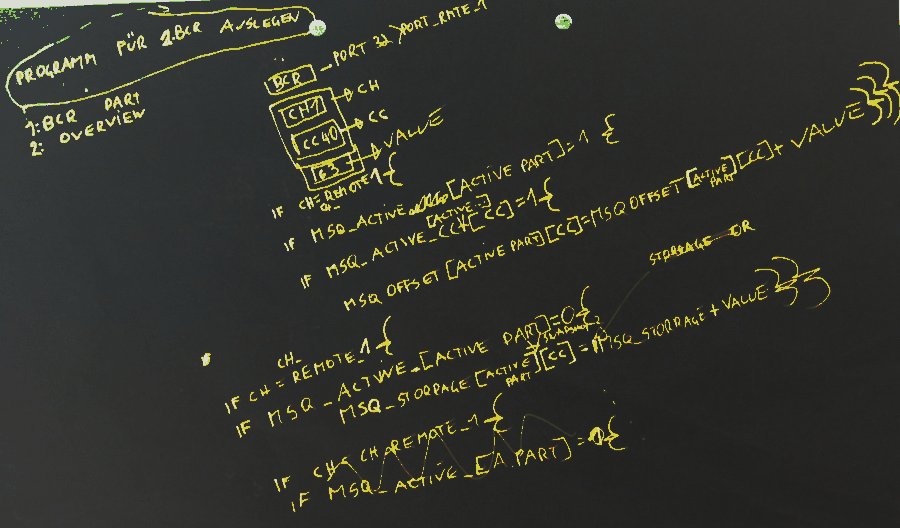 PROGRAMM FÜR 2.BCR AUSLEGEN
1: BCR PART
2: OVERVIEW
BCR PORT 32 PORT_RATE_1
CH1 CH
CC40 CC
63 VALUE
IF CH=CH_REMOTE_1 {
IF MSQ_ACTIVE [ACTIVE PART]=1 {
IF MSQ_ACTIVE_CC [CC]=1 {
MSQ OFFSET [ACTIVE PART][CC]=MSQ OFFSET [ACTIVE PART][CC]+ VALUE }}}
STORPAGE OR
IF CH = CH_REMOTE_1 {
IF MSQ_ACTIVE_[ACTIVE PART]=0 {
MSQ_STORPAGE [ACTIVE PART][CC] = MSQ_STORPAGE + VALUE }}
IF CH = CH REMOTE_1 {
IF MSQ_ACTIVE_[A PART] = {